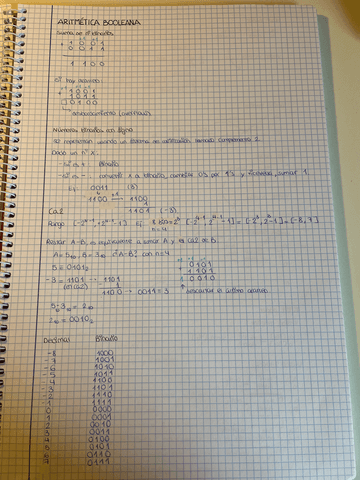 ARITMÉTICA BOOLEANA
Suma de nº binarios
+ 1 0 0 1
0 0 1 1
1 1 0 0
Si hay overflow:
+ 1001
1011
0100
desbordamiento (overflow)
Números binarios con signo
Se representan usando un sistema de codificación llamado complemento 2.
Dado un nº x:
-Si es + binario
-Si es - convertir x a binario, cambiar 0s por 1s y viceversa, sumar 1.
Ej 0011 (3)
1100 +1 1100
1
Ca2 1101 (-3)
Rango [-2^n-1, +2^n-1 -1] Ej n=4 [-2^4-1, 2^4-1 -1] = [-2^3, 2^3-1] = [-8, 7]
Restar A-B, es equivalente a sumar A y el ca2 de B
A=5₁₀, B=3₁₀ ¿A-B? con n=4
5=0101₂
-3=1101 1101
(en ca2)
1100 → 0011=3
0101
+ 1101
0010
descartar el último acarreo
5₁₀-3₁₀ = 2₁₀
2₁₀ = 0010₂
Decimal Binario
-8 1000
-7 1001
-6 1010
-5 1011
-4 1100
-3 1101
-2 1110
1111
0 0000
1 0001
2 0010
3 0011
4 0100
5 0101
6 0110
0111